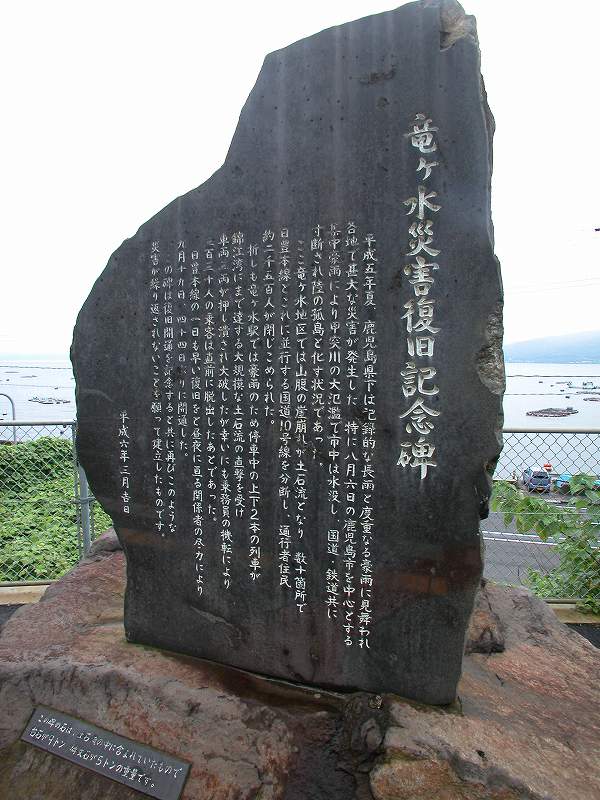 竜ヶ水災害復旧記念碑
平成五年夏、鹿児島県下は記録的な長雨と度重なる豪雨に見舞われ
各地で甚大な災害が発生した 特に八月六日の鹿児島市を中心とする
集中豪雨により甲突川の大氾濫で市中は水没し、国道・鉄道共に
寸断され陸の孤島と化す状況であった。
ここ竜ヶ水地区では山腹の崖崩れが土石流となり 数十箇所で
日豊本線とこれに並行する国道10号線を分断し、通行者住民
約二千五百人が閉じこめられた。
折しも竜ヶ水駅では豪雨のため停車中の上下2本の列車が
錦江湾にまで達する大規模な土石流の直撃を受け
車両二両が押し潰され大破したが幸いにも乗務員の機転により
三百三十人の乗客は直前に脱出したあとであった。
日豊本線の一日も早い復旧をと昼夜に亘る関係者の尽力により
九月十九日、四十四日ぶりに開通した。
この碑は復旧開通を記念すると共に再びこのような
災害が繰り返されないことを願って建立したものです。
平成六年三月吉日
この碑の石は、土石流の中に含まれていたもので
台石が9トン 碑文石が5トンの重量です。